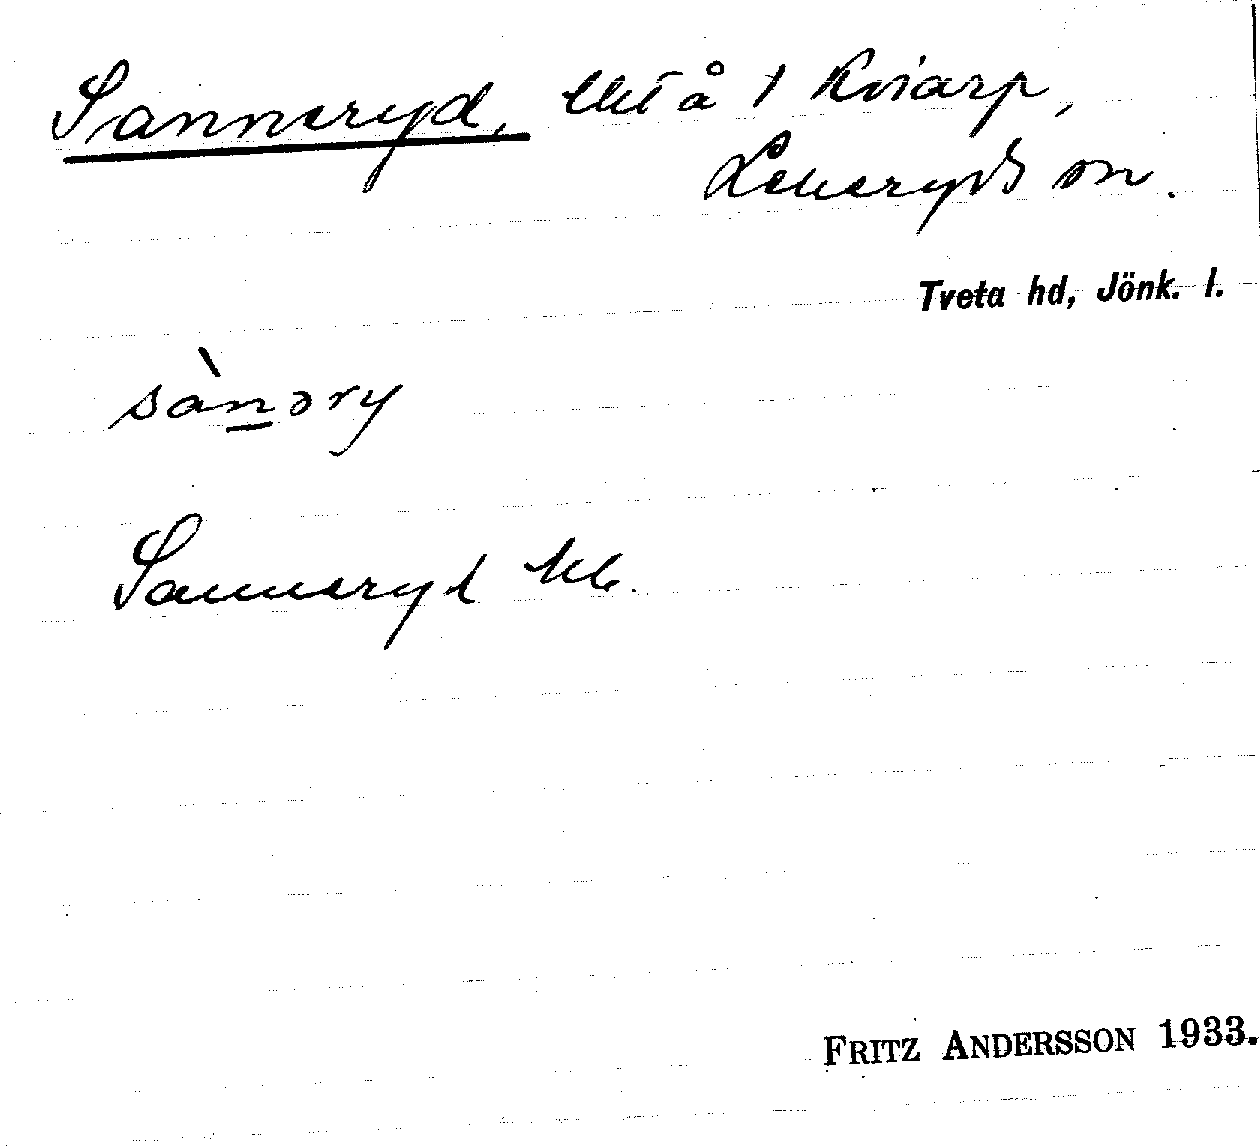 Sanneryd, lht å 1 Kviarp,
Lekeryds sn.
Tveta hd, Jönk. l.
sànəry
Sanneryd
FRITZ ANDERSSON 1933.